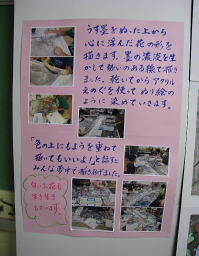 うす墨をぬった上から
心に浮んだ花の形を
描きます。墨の濃淡を生
かして勢いのある線で描き
ました。乾いてからアクリル
えのぐを使って、ぬり絵の
ように染めていきます。
「色の上にもようを重ねて
描いてもいいよ!」と話すと
みんな夢中で描き上げました。
お花も
生き生き
しています。